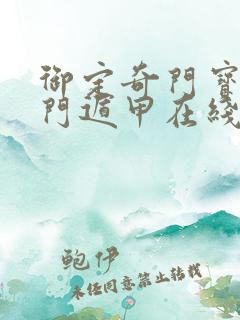 御定奇门宝
门遁甲在线
鲍伊
未经同意禁止转载